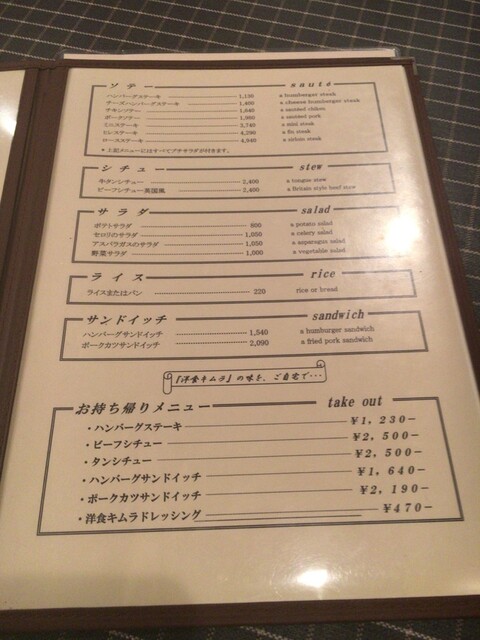 ソテー saute
ハンバーグステーキ 1,130 a humberger steak
チーズハンバーグステーキ 1,400 a cheese humberger steak
チキンソテー 1,640 a sauted chiken
ポークソテー a sauted pork
ミニステーキ 2,740 a mini steak
ヒレステーキ 4,290 a fin steak
ロースステーキ 4,940 a sirloin steak
＊上記メニューにはすべてプチサラダが付きます。
シチュー stew
牛タンシチュー 2,400 a tongue stew
ビーフシチュー英国風 2,400 a Britain style beef stew
サラダ salad
ポテトサラダ 600 a potato salad
セロリのサラダ 1,050 a celary salad
アスパラガスのサラダ 1,050 a asparagus salad
野菜サラダ 1,000 a vegetable salad
ライス rice
ライスまたはパン 220 rice or bread
サンドイッチ sandwich
ハンバーグサンドイッチ 1,540 a humburger sandwich
ポークカツサンドイッチ 2,090 a fried pork sandwich
『洋食キムラ』の味を、ご自宅で・・・
お持ち帰りメニュー take out
・ハンバーグステーキ ¥1,230−
・ビーフシチュー ¥2,500−
・タンシチュー ¥2,500−
・ハンバーグサンドイッチ ¥1,640−
・ポークカツサンドイッチ ¥2,190−
・洋食キムラドレッシング ¥470−